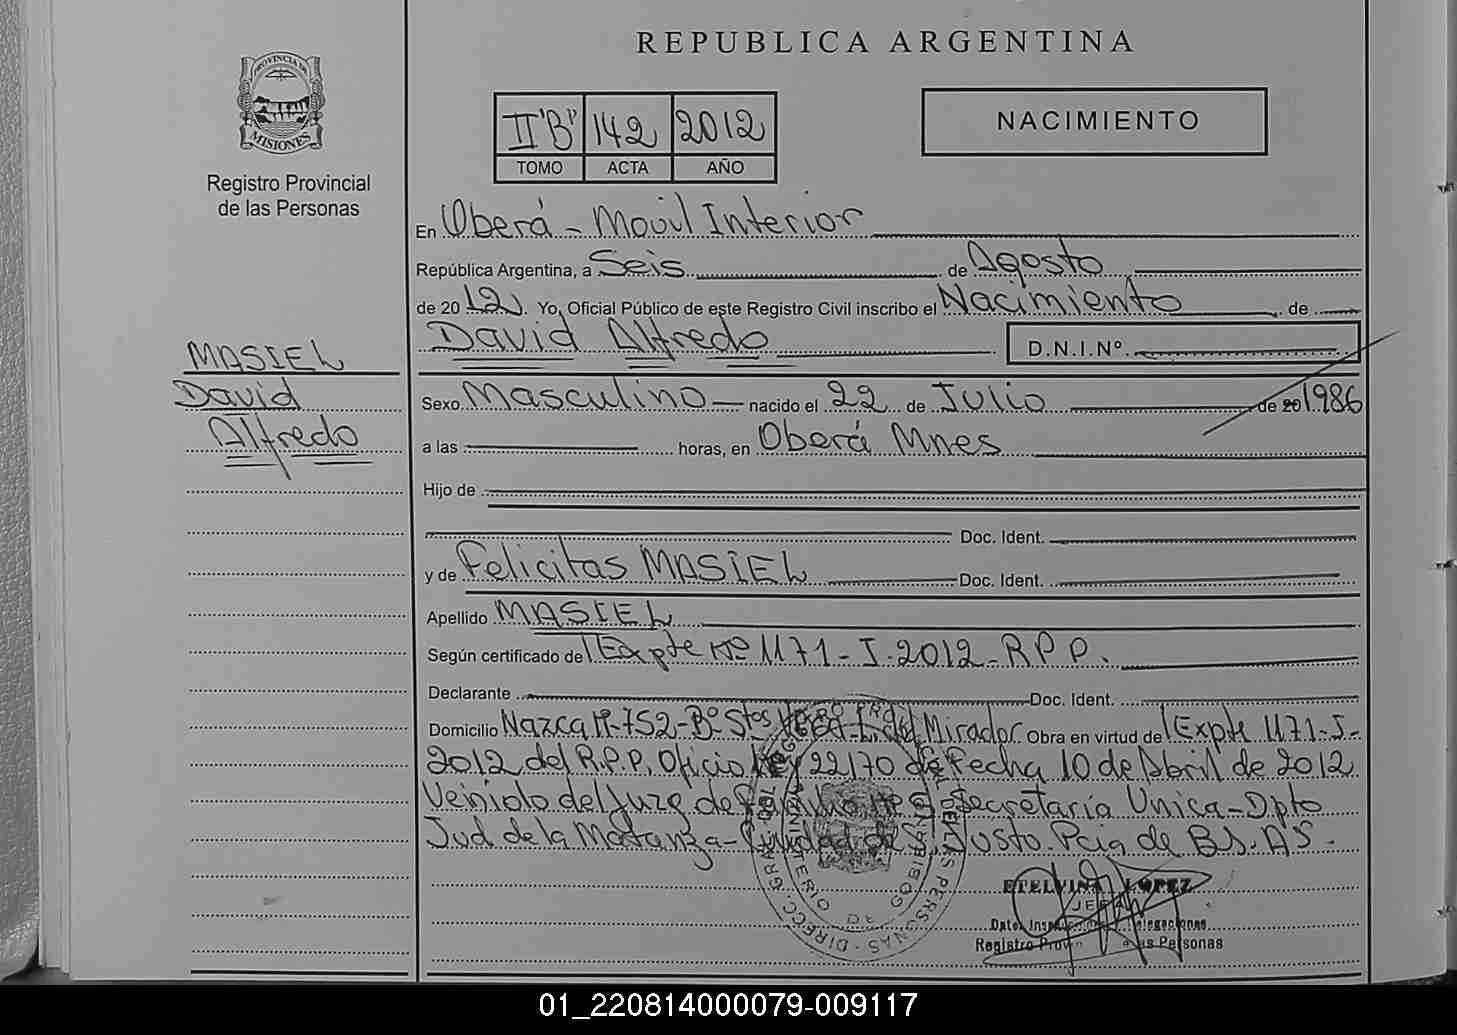 REPUBLICA ARGENTINA
PROVINCIA DE
MISIONES
Registro Provincial
de las Personas
II "B" 142 2012
TOMO ACTA AÑO
NACIMIENTO
En Oberá - Movil Interior
República Argentina, a Seis de Agosto
de 2012. Yo, Oficial Público de este Registro Civil inscribo el Nacimiento de
David Alfredo D.N.I.Nº.
MASIEL
David
Alfredo
Sexo Masculino nacido el 22 de Julio de 20 1986
a las horas, en Oberá Mnes
Hijo de
Doc. Ident.
y de Felicitas MASIEL Doc. Ident.
Apellido MASIEL
Según certificado de Expte Nº 1171-I-2012-R.P.P.
Declarante Doc. Ident.
Domicilio Nazca Nº 752-Bº Stos del Mirador Obra en virtud de Expte 1171-I-
2012 del R.P.P. Oficio Ley 22170 de Fecha 10 de Abril de 2012
del Juzg de Secretaría Unica-Dpto
Jud de la Matanza-Ciudad de S. Justo. Pcia de BS.AS.
ETELVINA LOPEZ
JEFA
Dpto. Delegaciones
Registro Prov de las Personas
01_220814000079-009117